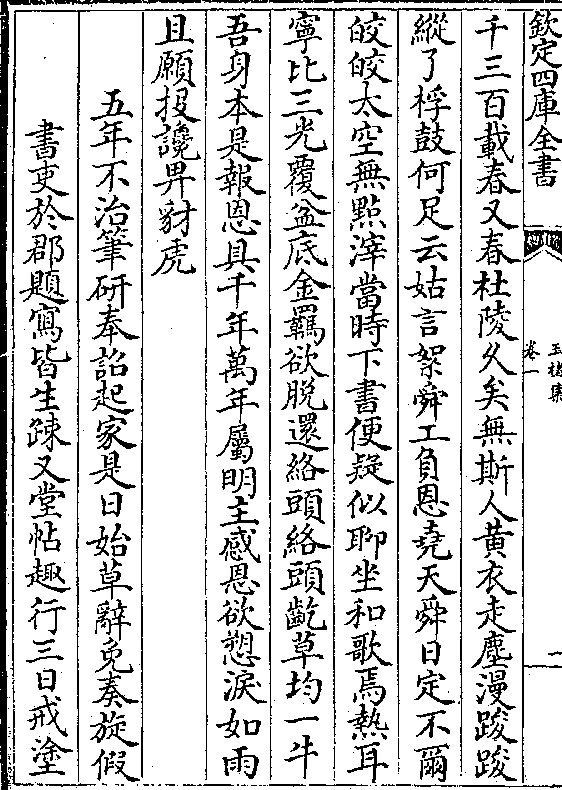 欽定四庫全書
卷一
千三百載春又春杜陵久矣無斯人黄衣走塵漫踆踆
縱了桴鼓何足云姑言絮舜工負恩堯天舜日定不爾
皎皎太空無㸃滓當時下書便疑似聊坐和歌焉熱耳
寧比三光覆盆底金羈欲脱還絡頭絡頭齕草均一牛
吾身本是報恩具千年萬年屬明主感恩欲愬淚如雨
且願投讒畀豺虎
五年不治筆研奉詔起家是日始草辭免奏旋假
書吏於郡題寫皆生疎又堂帖趣行三日戒塗